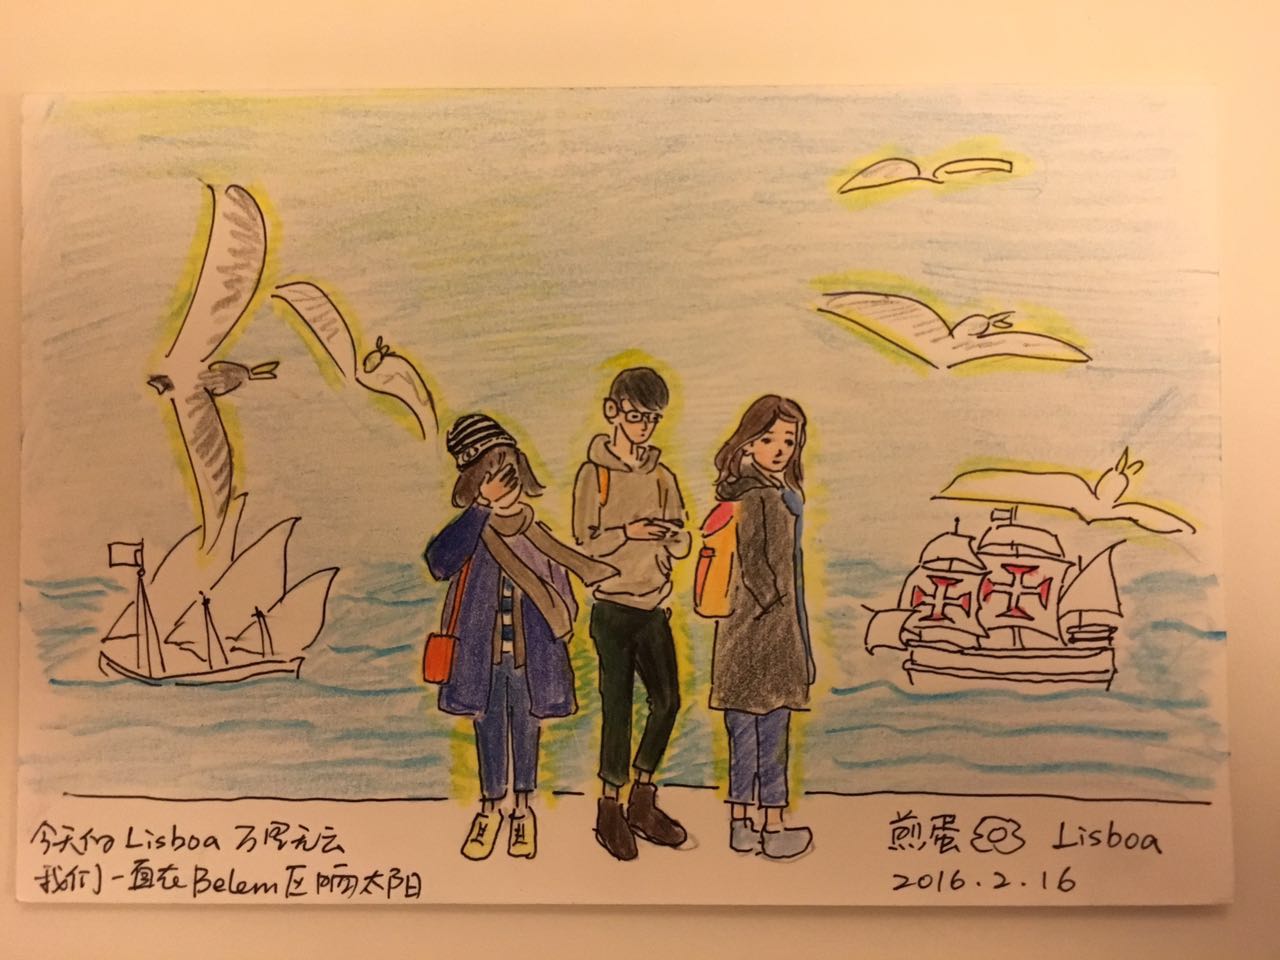 今天的Lisboa 万里无云
我们一直在Belem区晒太阳
煎蛋 Lisboa
2016.2.16